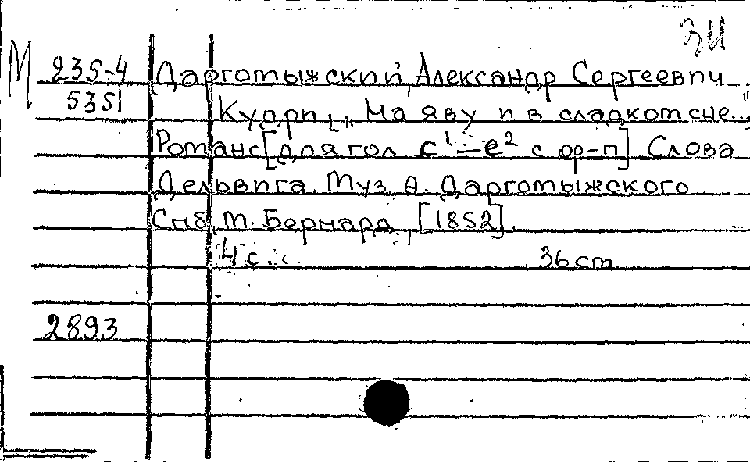 ЗН
М 235-4 Даргомыжский, Александр Сергеевич
5351 Кудри. „На яву и в сладком сне..."
Романс [для гол. c¹–e² с ф-п]. Слова
Дельвига. Муз. А. Даргомыжского
Спб, М. Бернард, [1852].
4 с. 36 cm
2893